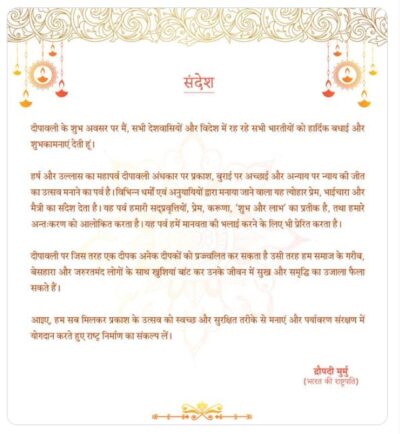 संदेश
दीपावली के शुभ अवसर पर मैं, सभी देशवासियों और विदेश में रह रहे सभी भारतीयों को हार्दिक बधाई और
शुभकामनाएं देती हूं।
हर्ष और उल्लास का महापर्व दीपावली अंधकार पर प्रकाश, बुराई पर अच्छाई और अन्याय पर न्याय की जीत
का उत्सव मनाने का पर्व है। विभिन्न धर्मों एवं अनुयायियों द्वारा मनाया जाने वाला यह त्योहार प्रेम, भाईचारा और
मैत्री का संदेश देता है। यह पर्व हमारी सद्प्रवृत्तियों, प्रेम, करुणा, ‘शुभ और लाभ’ का प्रतीक है, तथा हमारे
अन्तःकरण को आलोकित करता है। यह पर्व हमें मानवता की भलाई करने के लिए भी प्रेरित करता है।
दीपावली पर जिस तरह एक दीपक अनेक दीपकों को प्रज्वलित कर सकता है उसी तरह हम समाज के गरीब,
बेसहारा और जरुरतमंद लोगों के साथ खुशियां बांट कर उनके जीवन में सुख और समृद्धि का उजाला फैला
सकते हैं।
आइए, हम सब मिलकर प्रकाश के उत्सव को स्वच्छ और सुरक्षित तरीके से मनाएं और पर्यावरण संरक्षण में
योगदान करते हुए राष्ट्र निर्माण का संकल्प लें।
द्रौपदी मुर्मु
(भारत की राष्ट्रपति)